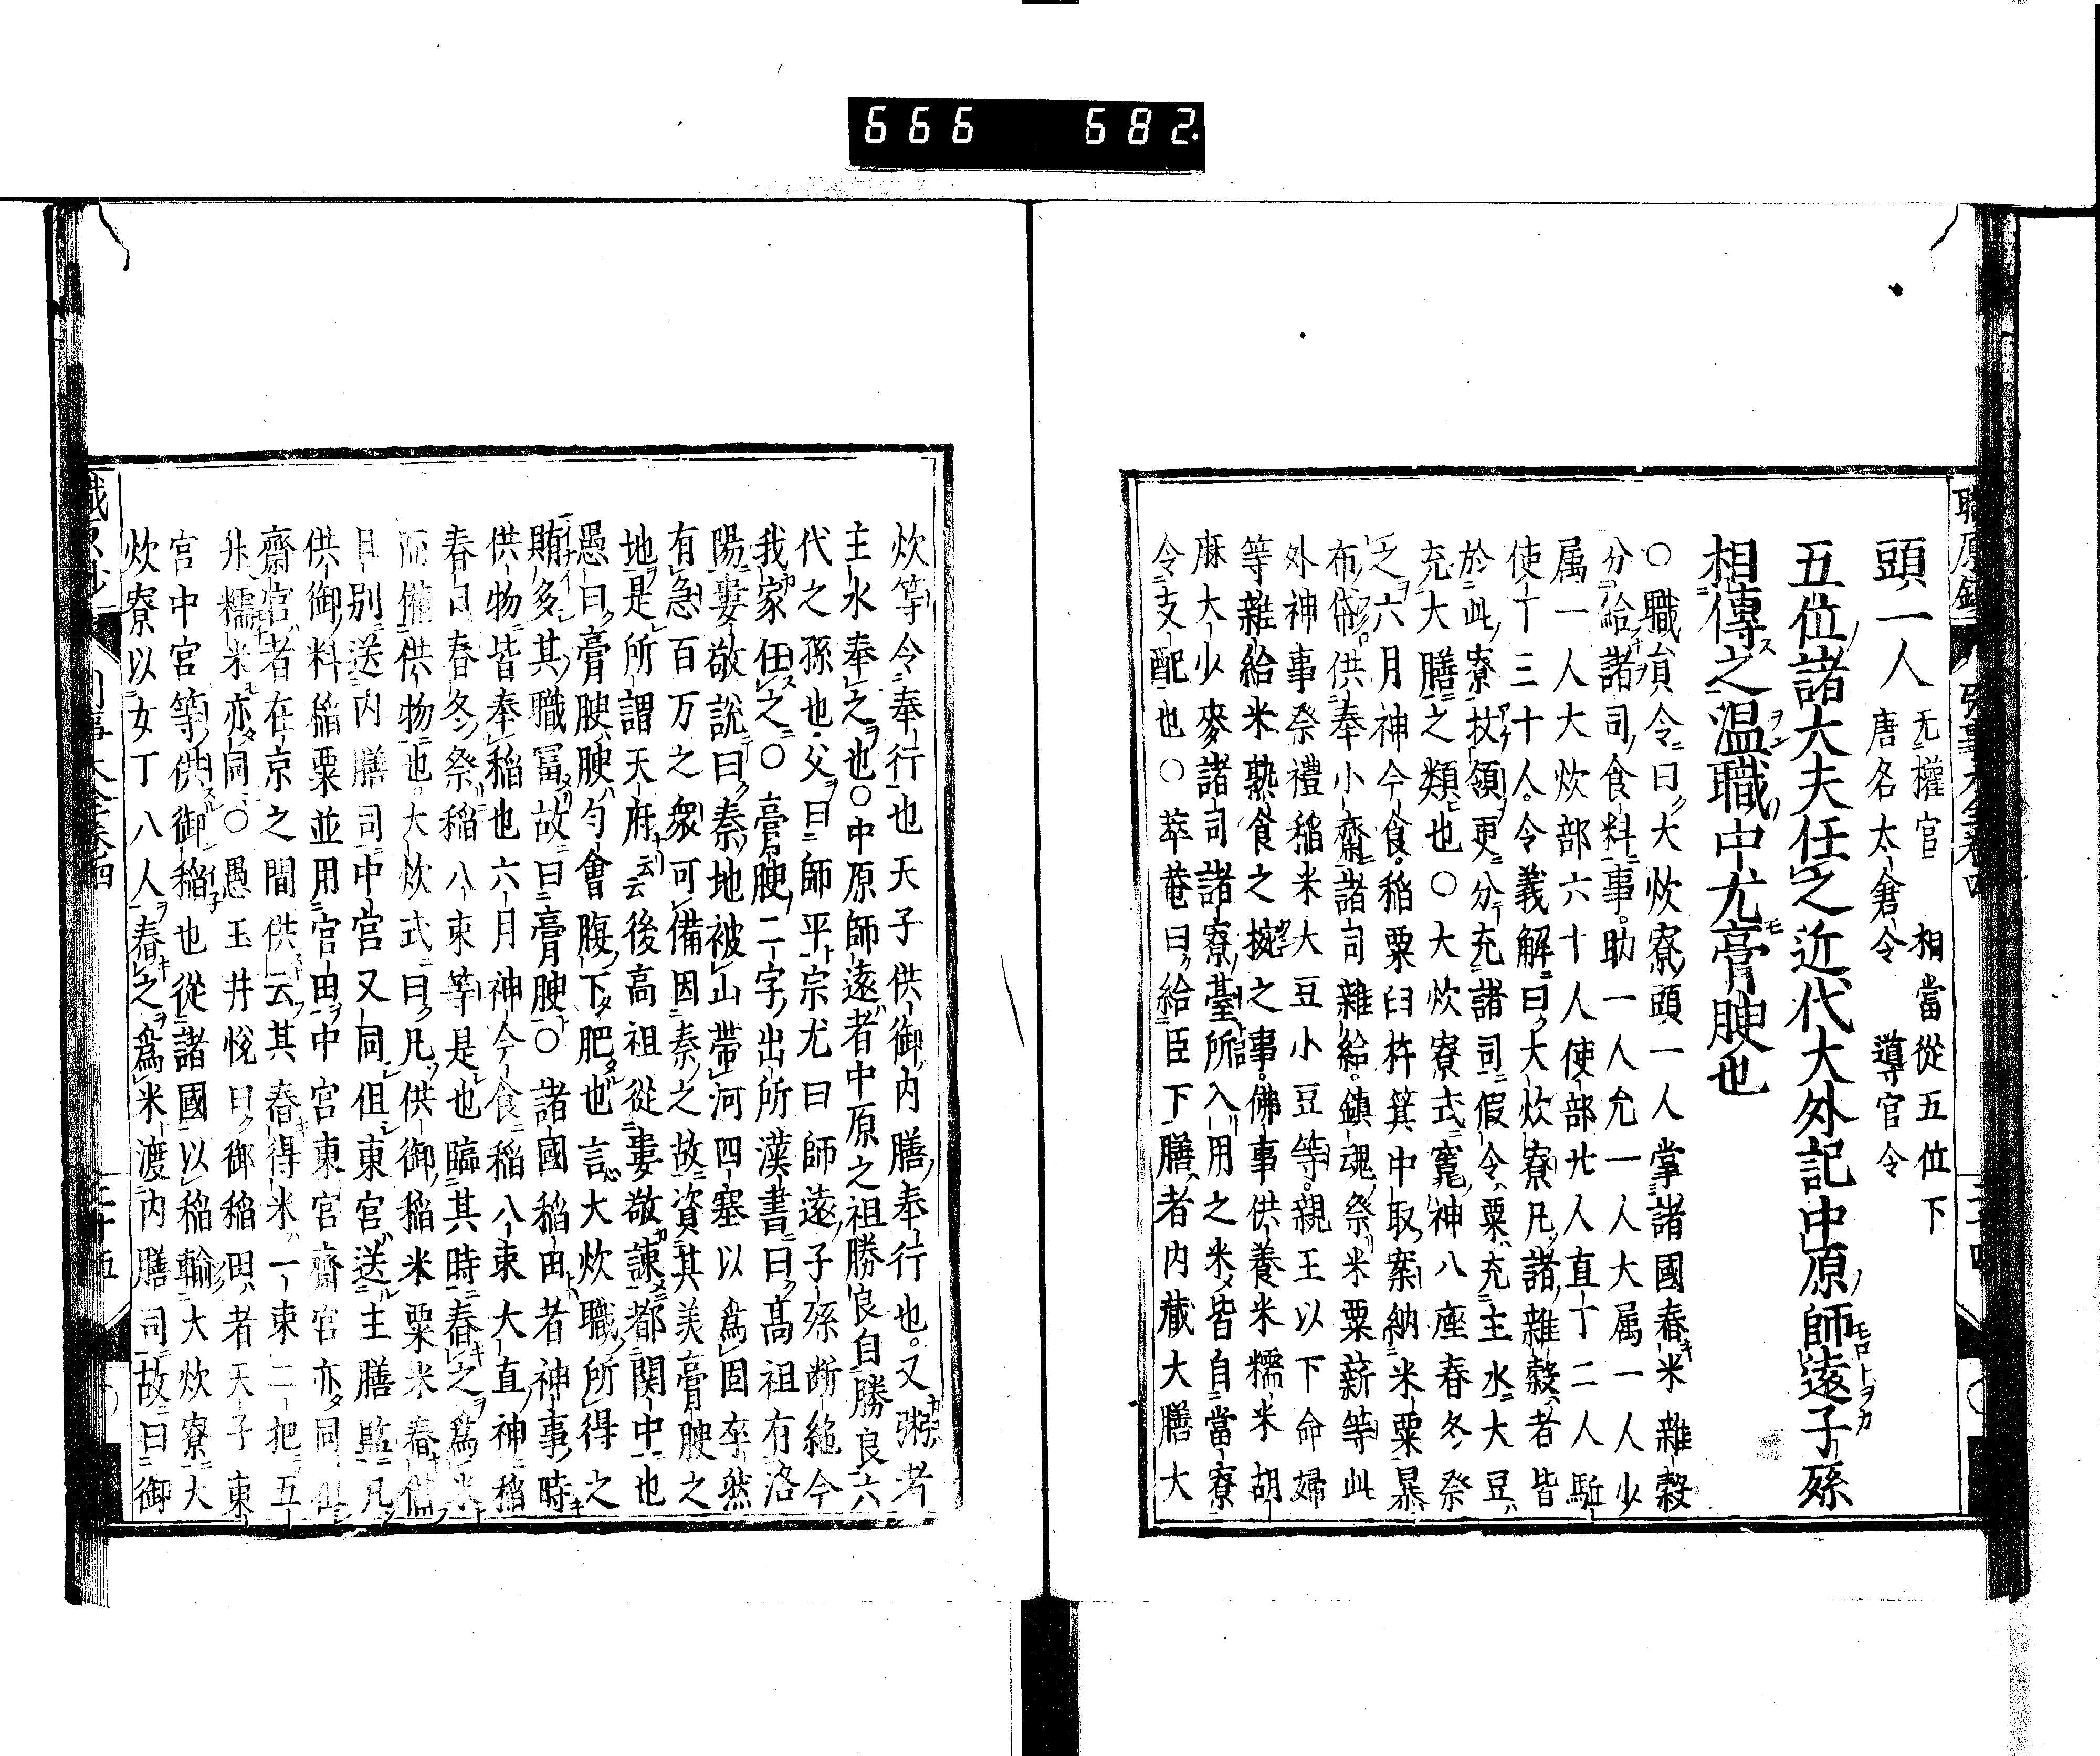 666 682.
頭一人 无權官 相當從五位下
唐名太倉令 導官令
五位諸大夫任之近代大外記中原師遠子孫
相傳之温職中尤膏腴也
○職員令曰大炊寮頭一人掌諸國舂米雜穀
分給諸司食料事助一人允一人大属一人少
属一人大炊部六十人使部廿人直丁二人駈
使丁三十人令義解曰大炊寮凡諸雜穀者皆
於此寮扙領更分充諸司假令粟充主水大豆
充大膳之類也○大炊寮式竃神八座春冬祭
之六月神今食稲粟臼杵箕中取案納米粟暴
布帒供奉小齋諸司雜給鎮魂祭米粟薪等此
外神事祭禮稲米大豆小豆等親王以下命婦
等雜給米熟食之㨨之事佛事供養米糯米胡
麻大少麥諸司諸寮臺所入用之米皆自當寮
令支配也○萃菴曰給臣下膳者内藏大膳大
炊等令奉行也天子供御内膳奉行也又粥者
主水奉之也○中原師遠者中原之祖勝良自勝良六
代之孫也父曰師平宗尤曰師遠子孫断絶今
我家任之○膏腴二字出所漢書曰髙祖有洛
陽婁敬説曰秦地被山帶河四塞以爲固卒然
有急百万之衆可備因秦之故資其美膏腴之
地是所謂天府云云後高祖從婁敬諫都関中也
愚曰膏腴腴勻會腹下肥也言大炊職所得之
賄多其職冨故曰膏腴○諸國稲田者神事時
供物皆奉稲也六月神今食稲八束大直神稲
春日春冬祭稲八束等是也臨其時舂之爲米
而備供物也大炊式曰凡供御稲米粟米舂備
日別送内膳司中宮又同但東宮送主膳監凡
供御料稲粟並用官田中宮東宮齋宮亦同
齋宮者在京之間供云其舂得米一束二把五
升糯米亦同○愚玉井悅曰御稲田者天子東
宮中宮等供御稲也從諸國以稲輸大炊寮大
炊寮以女丁八人舂之爲米渡内膳司故曰御